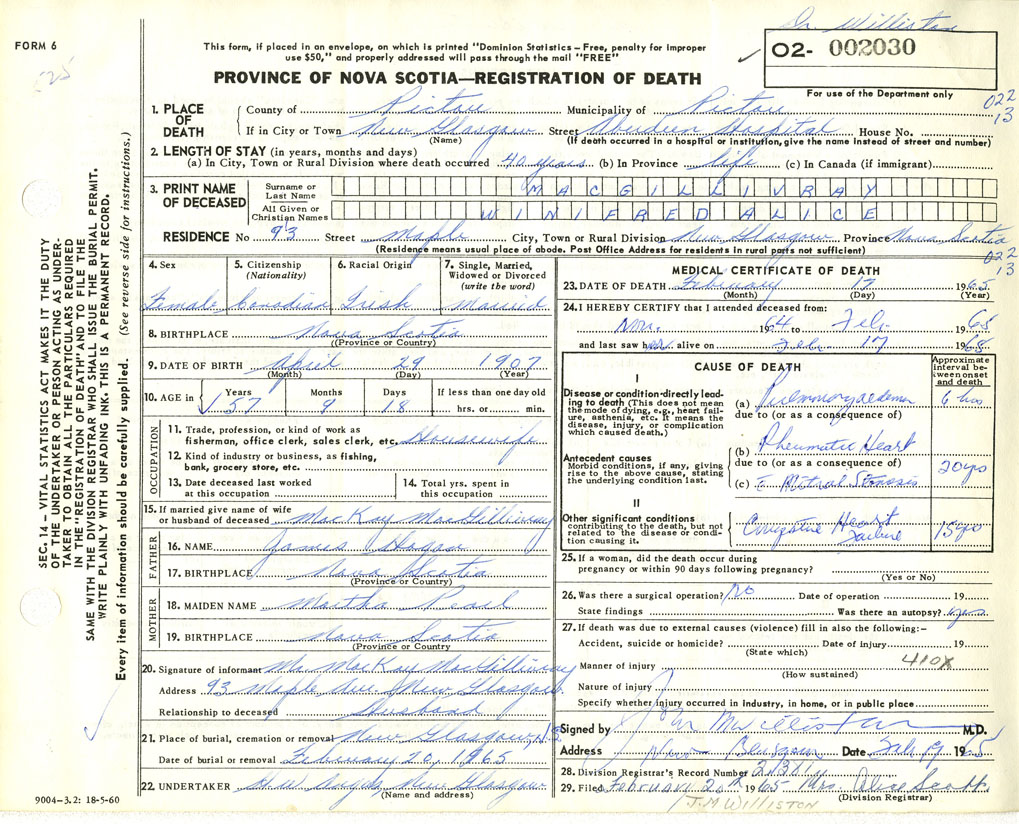 Dr. Williston
FORM 6
This form, if placed in an envelope, on which is printed "Dominion Statistics – Free, penalty for improper
use $50," and properly addressed will pass through the mail "FREE"
02- 002030
PROVINCE OF NOVA SCOTIA—REGISTRATION OF DEATH
For use of the Department only
022
13
1. PLACE OF DEATH
County of Pictou Municipality of Pictou
If in City or Town New Glasgow Street Aberdeen Hospital House No.
(Name) (If death occurred in a hospital or institution, give the name instead of street and number)
2. LENGTH OF STAY (in years, months and days)
(a) In City, Town or Rural Division where death occurred 40 years (b) In Province life (c) In Canada (if immigrant)
3. PRINT NAME OF DECEASED
Surname or Last Name MACGILLIVRAY
All Given or Christian Names WINIFRED ALICE
RESIDENCE No 93 Street Maple City, Town or Rural Division New Glasgow Province Nova Scotia
(Residence means usual place of abode. Post Office Address for residents in rural parts not sufficient)
022
13
4. Sex
Female
5. Citizenship
(Nationality)
Canadian
6. Racial Origin
Irish
7. Single, Married,
Widowed or Divorced
(write the word)
Married
8. BIRTHPLACE Nova Scotia
(Province or Country)
9. DATE OF BIRTH April 29 1907
(Month) (Day) (Year)
10. AGE in Years Months Days If less than one day old
57 9 18 hrs. or min.
OCCUPATION
11. Trade, profession, or kind of work as
fisherman, office clerk, sales clerk, etc. Housewife
12. Kind of industry or business, as fishing,
bank, grocery store, etc.
13. Date deceased last worked
at this occupation
14. Total yrs. spent in
this occupation
15. If married give name of wife
or husband of deceased MacKay MacGillivray
FATHER
16. NAME James Hogan
17. BIRTHPLACE Nova Scotia
(Province or Country)
MOTHER
18. MAIDEN NAME Martha Pearl
19. BIRTHPLACE Nova Scotia
(Province or Country)
20. Signature of informant Mr. MacKay MacGillivray
Address 93 Maple Ave. New Glasgow
Relationship to deceased Husband
21. Place of burial, cremation or removal New Glasgow, N.S.
Date of burial or removal February 20, 1965
22. UNDERTAKER New Glasgow
(Name and address)
9004-3.2: 18-5-60
MEDICAL CERTIFICATE OF DEATH
23. DATE OF DEATH February 17 1965
(Month) (Day) (Year)
24. I HEREBY CERTIFY that I attended deceased from:
Nov. 1964 to Feb. 1965
and last saw her alive on Feb. 17 1965
CAUSE OF DEATH
Approximate
interval be-
tween onset
and death
I
Disease or condition directly lead-
ing to death (This does not mean
the mode of dying, e.g., heart fail-
ure, asthenia, etc. It means the
disease, injury, or complication
which caused death.)
(a) Pulmonary oedema 6 hrs
due to (or as a consequence of)
Antecedent causes
Morbid conditions, if any, giving
rise to the above cause, stating
the underlying condition last.
(b) Rheumatic Heart
due to (or as a consequence of) 20 yrs
(c) c̄ Mitral Stenosis
II
Other significant conditions
contributing to the death, but not
related to the disease or condi-
tion causing it.
Congestive Heart
Failure 15 yrs
25. If a woman, did the death occur during
pregnancy or within 90 days following pregnancy?
(Yes or No)
26. Was there a surgical operation? No Date of operation 19
State findings Was there an autopsy? yes
27. If death was due to external causes (violence) fill in also the following:–
Accident, suicide or homicide? Date of injury 19
(State which)
410X
Manner of injury
(How sustained)
Nature of injury
Specify whether injury occurred in industry, in home, or in public place
Signed by J M Williston M.D.
Address New Glasgow Date Feb. 19 1965
28. Division Registrar's Record Number
29. Filed February 20th 1965 Mrs. Alice Scott
(Division Registrar)
J.M WILLISTON
SEC. 14 – VITAL STATISTICS ACT MAKES IT THE DUTY
OF THE UNDERTAKER OR PERSON ACTING AS UNDER-
TAKER TO OBTAIN ALL THE PARTICULARS REQUIRED
IN THE "REGISTRATION OF DEATH" AND TO FILE THE
SAME WITH THE DIVISION REGISTRAR WHO SHALL ISSUE THE BURIAL PERMIT.
WRITE PLAINLY WITH UNFADING INK. THIS IS A PERMANENT RECORD.
Every item of information should be carefully supplied. (See reverse side for instructions.)